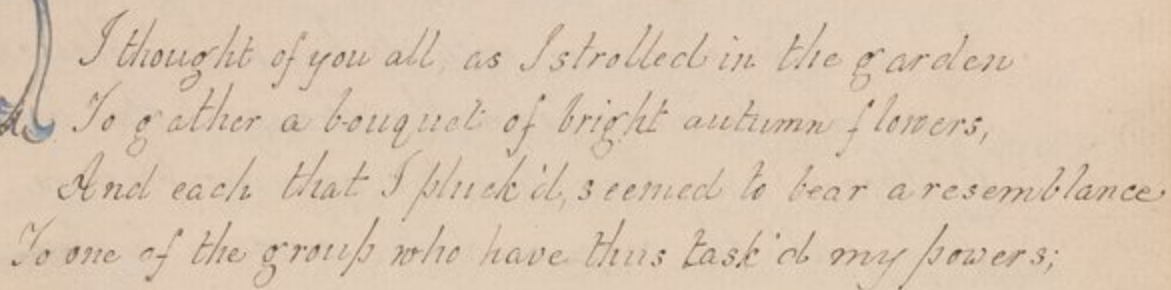 I thought of you all, as I strolled in the garden
To gather a bouquet of bright autumn flowers,
And each that I pluck'd, seemed to bear a resemblance
To one of the group who have thus task'd my powers;